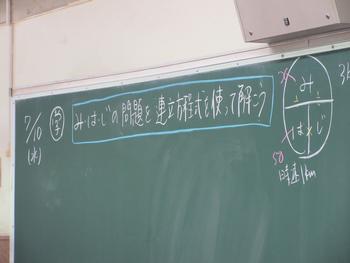 7/10
(水)
学
み・は・じの問題を連立方程式を使って解こう
み
は
じ
50
時速1km